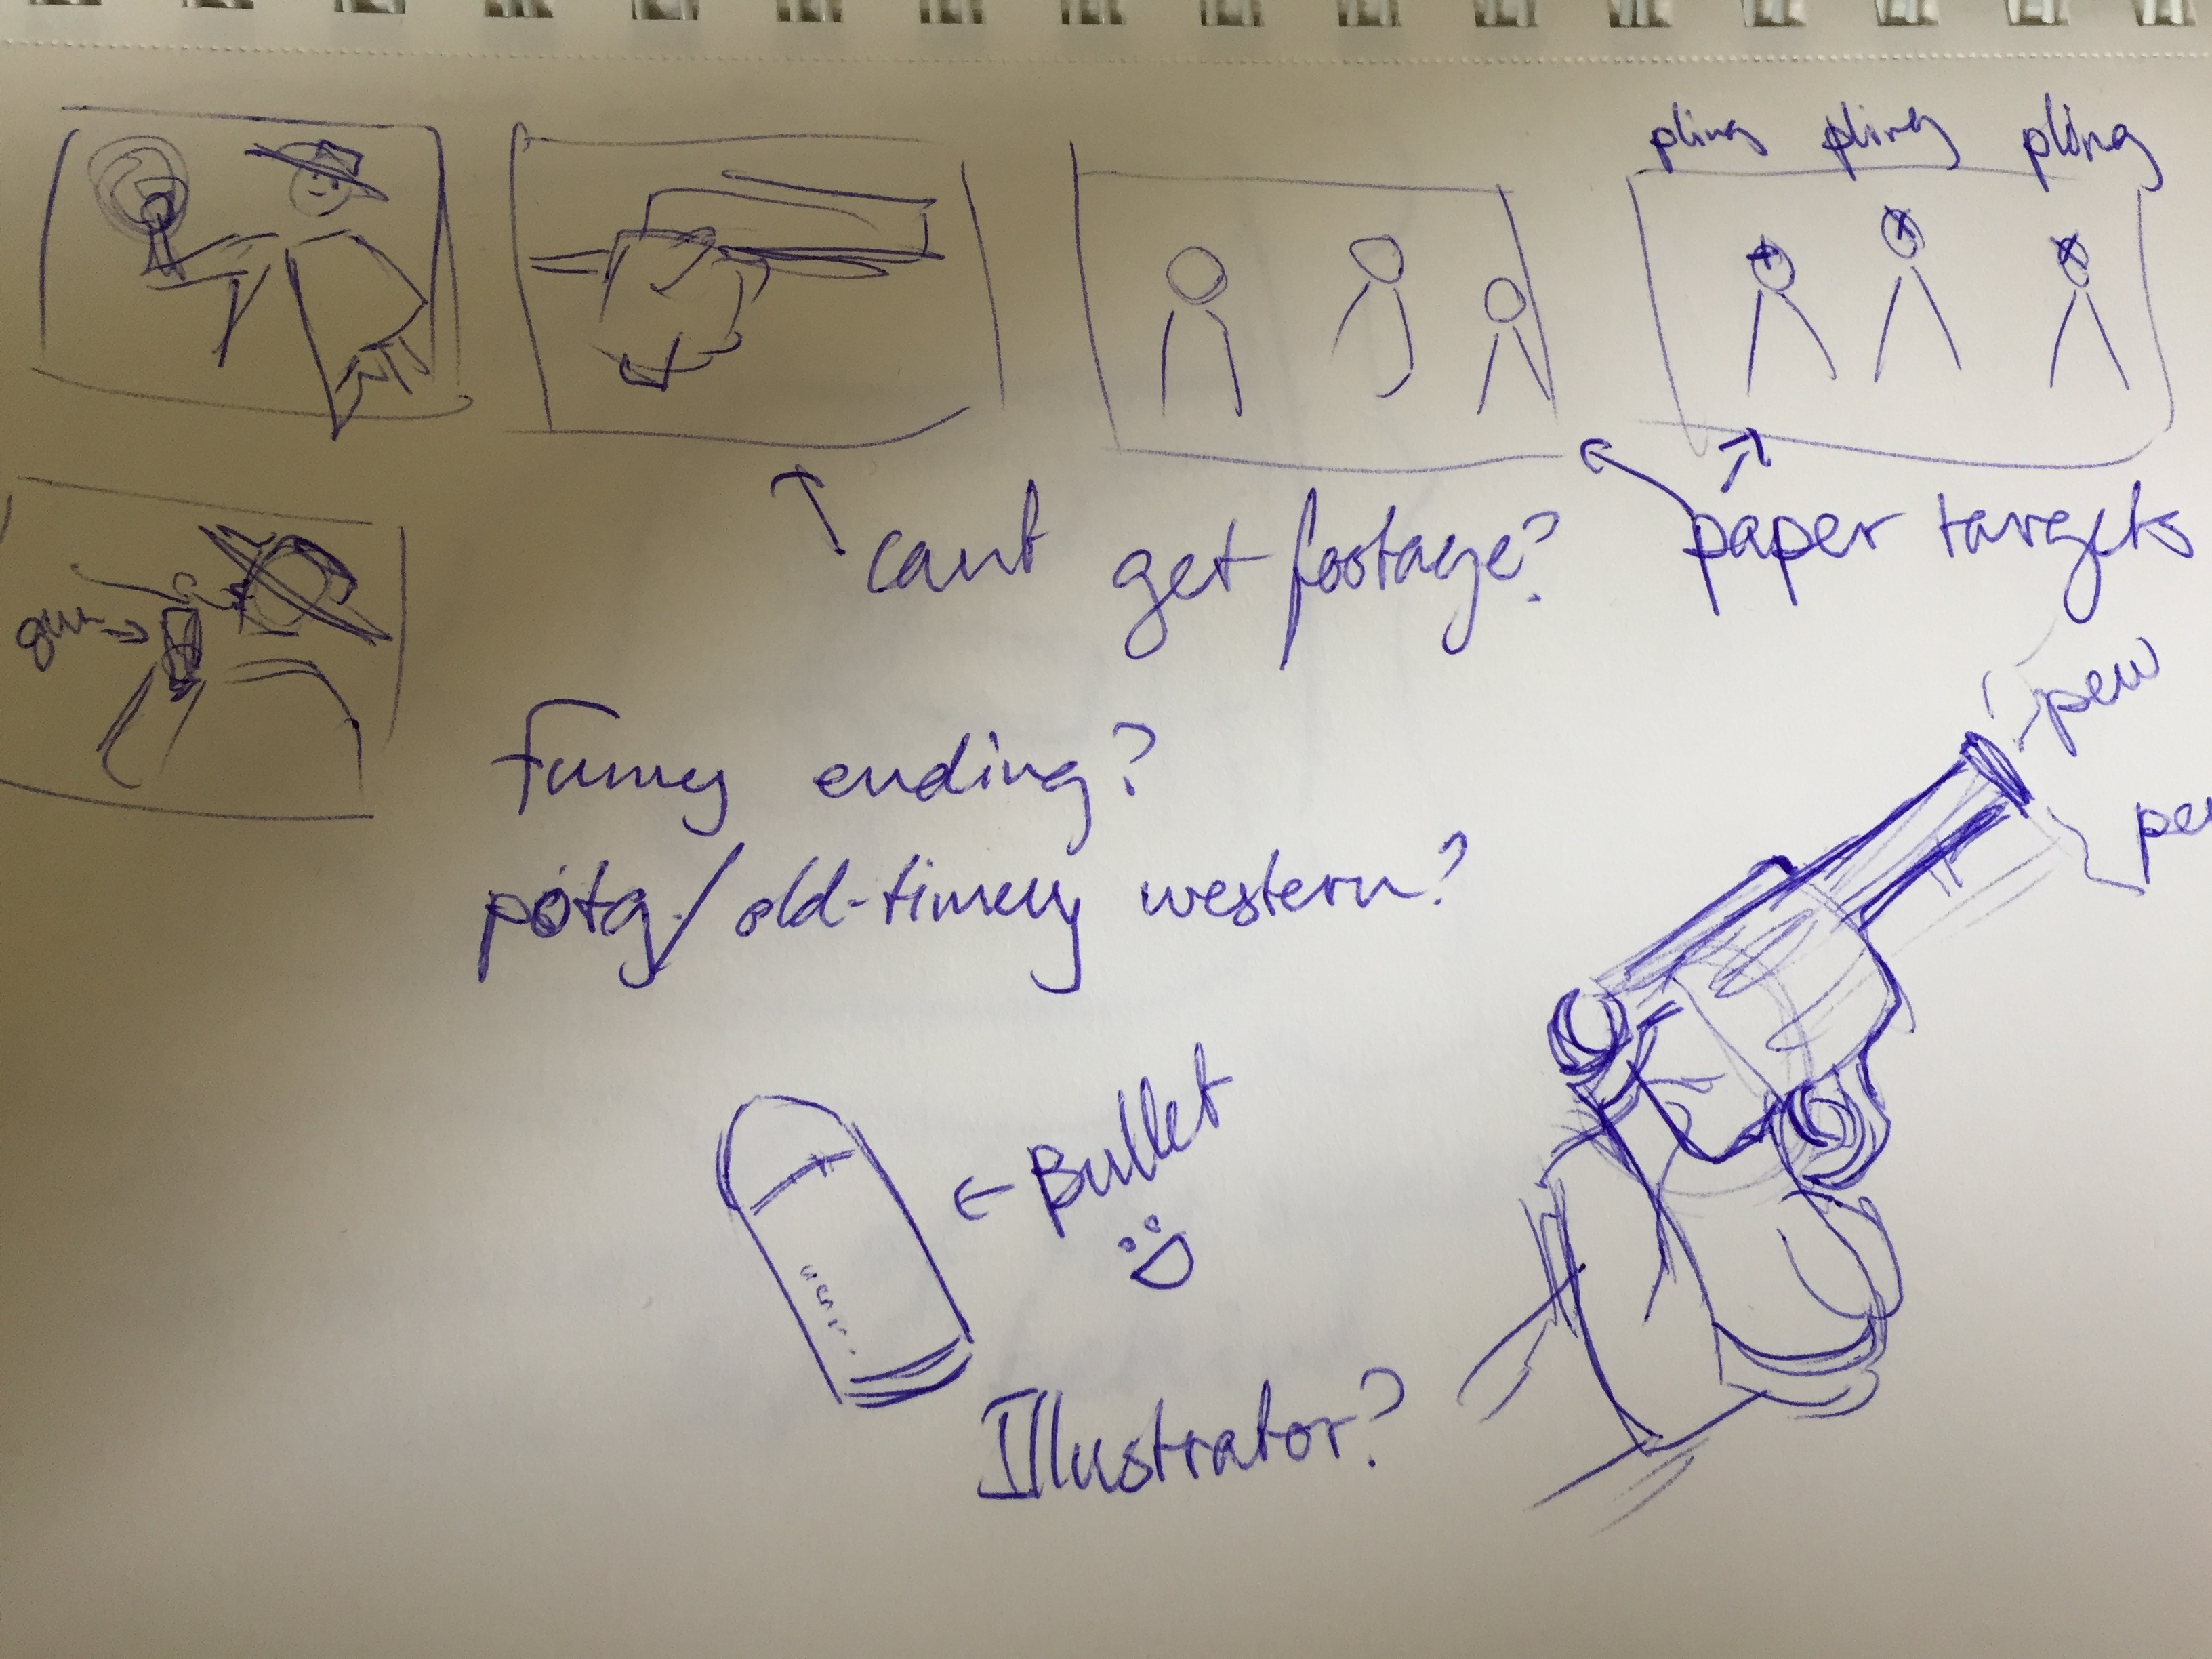 pling pling pling
cant get footage?
paper targets
gun
pew
Funny ending?
potg/old-timey western?
Bullet
Illustrator?